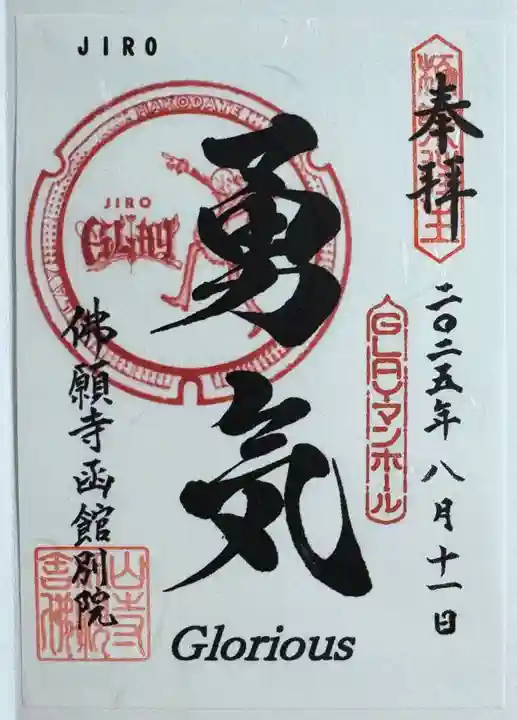 JIRO
奉拝
二〇二五年八月十一日
GLAYマンホール
勇気
HAKODATE
JIRO
GLAY
佛願寺函館別院
Glorious